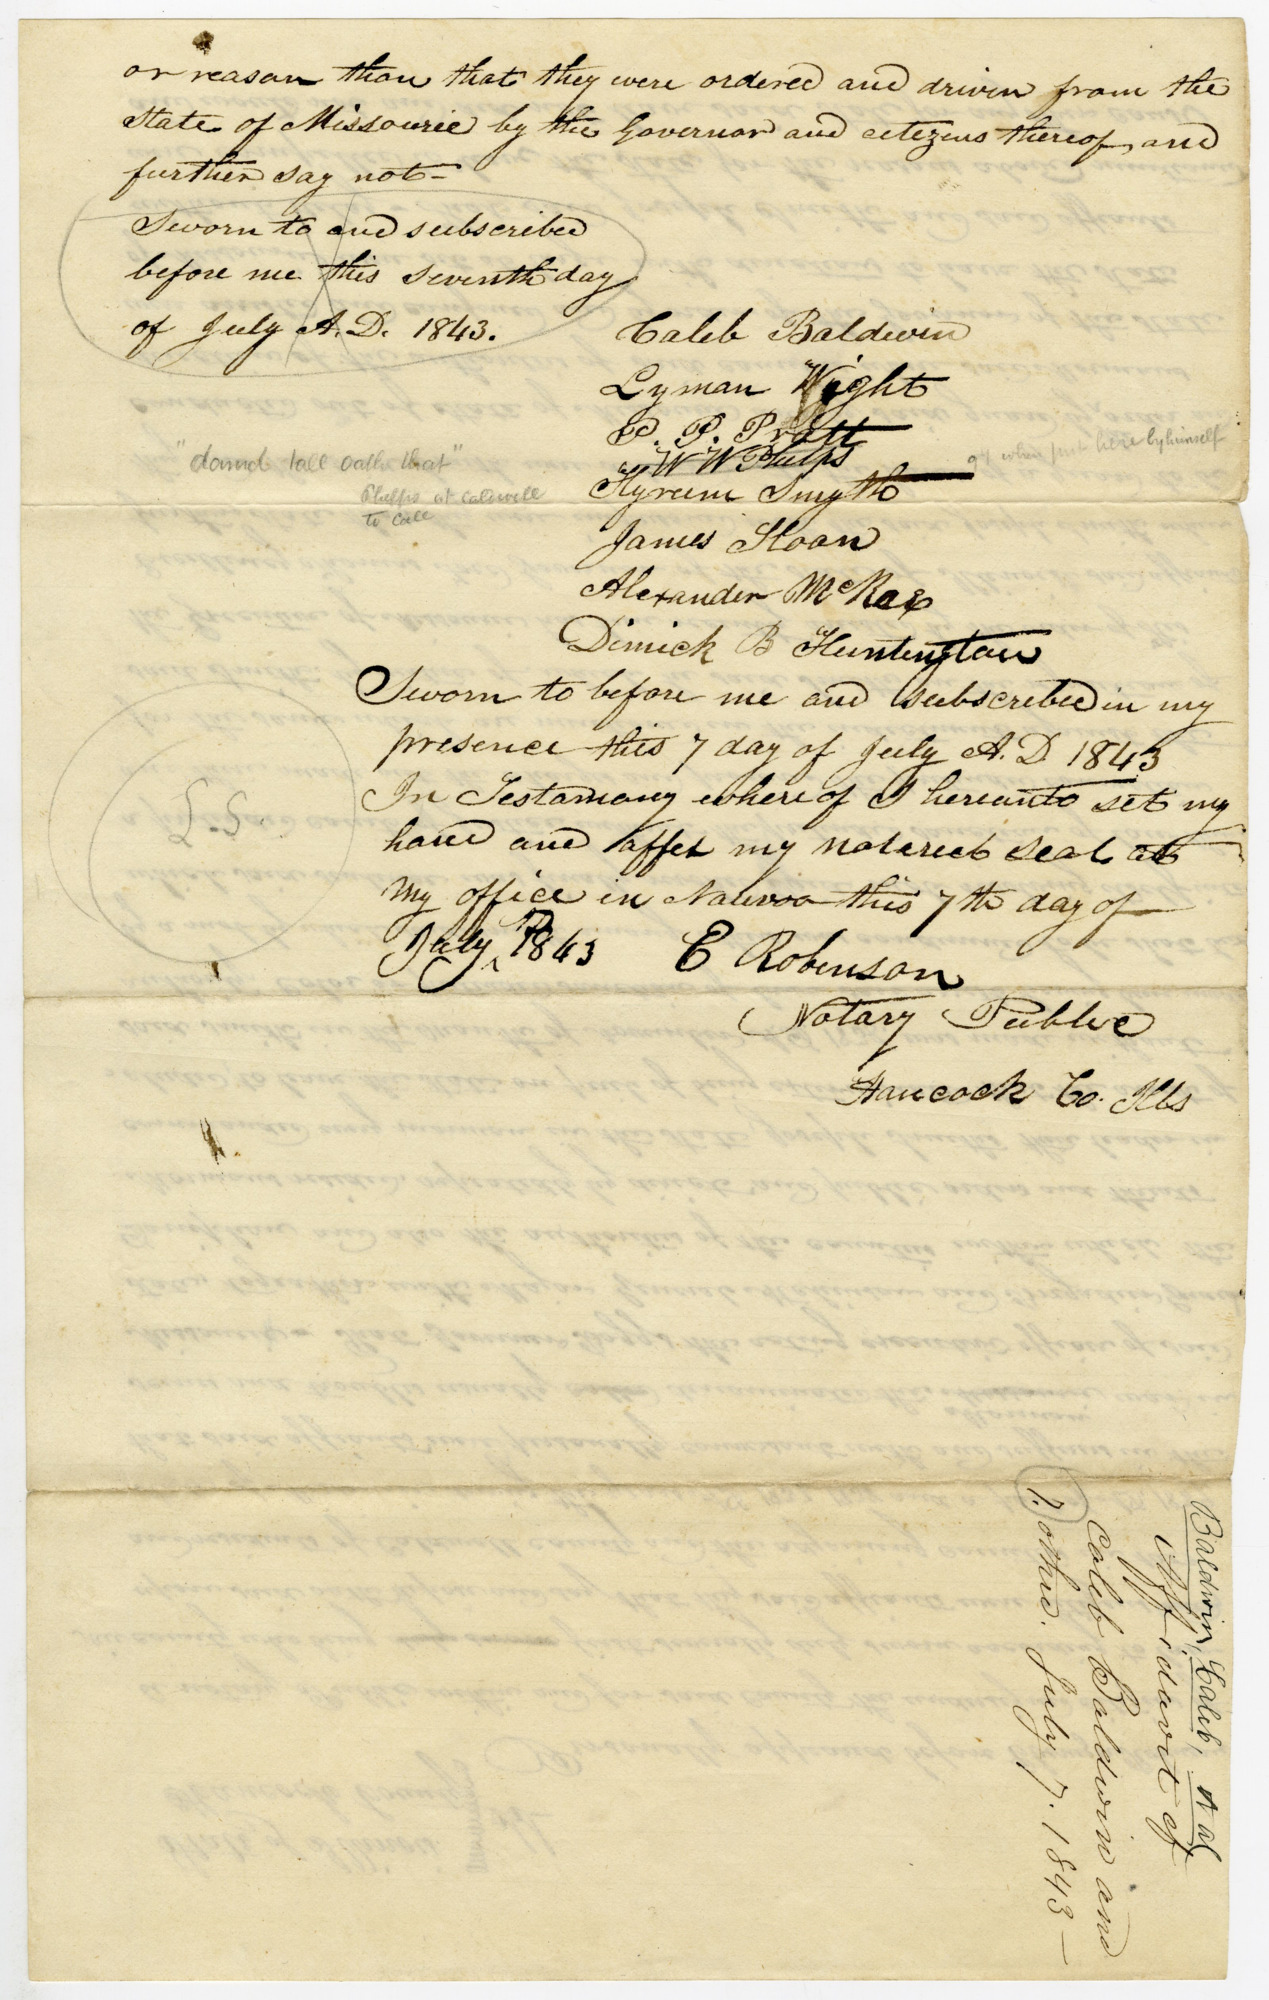 or reason than that they were ordered and driven from the
State of Missourie by the Governor and citezens thereof, and
further say not—
Sworn to and subscribed
before me this seventh day
of July A.D. 1843.
Caleb Baldwin
Lyman Wight
P. P. Pratt
W W Phelps
Hyrum Smyth
James Sloan
Alexander McRae
Dimick B Huntington
"damd tall oath that"
Phelps at Caldwell
when put here by himself
Sworn to before me and subscribed in my
presence this 7 day of July A. D. 1843
In Testamony whereof I hereunto set my
hand and affix my notereel seal at
My office in Nauvoo this 7th day of
July AD 1843 E Robinson
Notary Public
Hancock Co. Ills
L.S.
Baldwin, Caleb, et al
Affidavit of
Caleb Baldwin and
7. others. July 7. 1843—